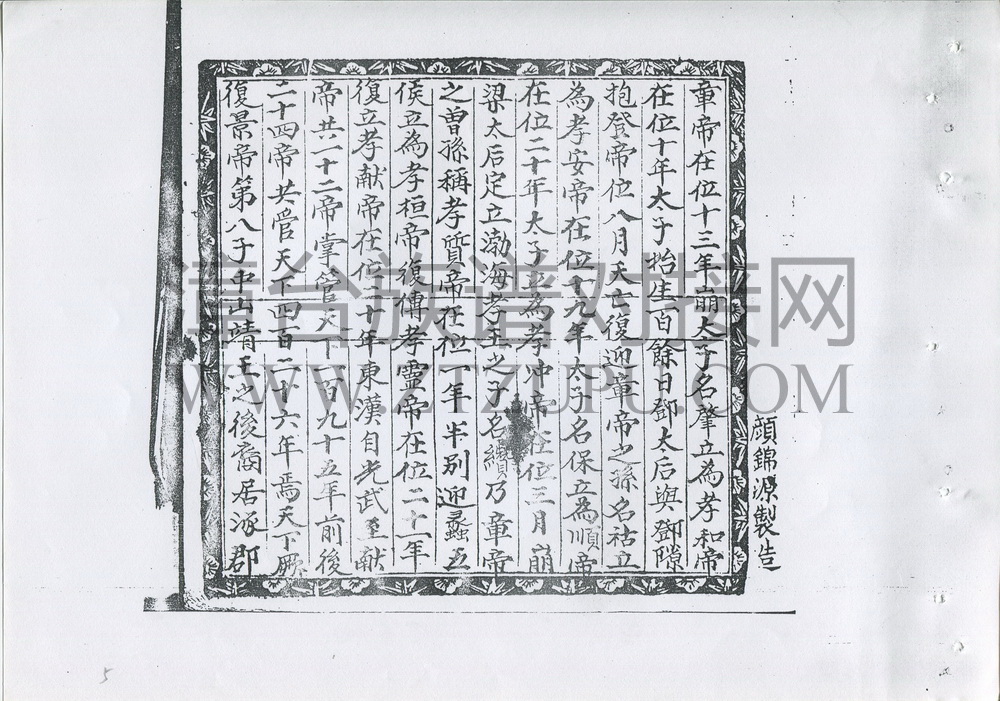 章帝在位十三年崩太子名肇立為孝和帝
在位十年太子抬生百餘日鄧太后與鄧隙
抱登帝位八月夭亡復迎章帝之孫名祜立
為孝安帝在位十九年太子名保立為順帝
在位二十年太子立為孝冲帝在位三月崩
梁太后定立渤海孝王之子名纘乃章帝
之曽孫稱孝質帝在位一年半别迎蠡五
侯立為孝桓帝復傳孝靈帝在位二十一年
復立孝献帝在位三十年東漢自光武至献
帝共一十二帝掌管天下一百九十五年前後
二十四帝共管天下四百二十六年焉天下厥
復景帝第八子中山靖王之後裔居涿郡
顔錦源製造
5
清台族谱对接网
WWW.ZTZUPU.COM